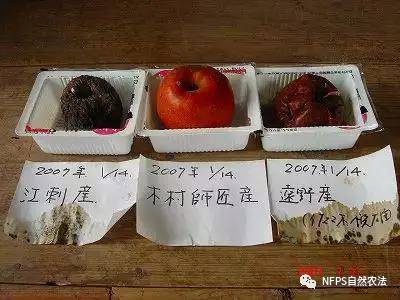 2007年 1/14.
江刺産
2007年 1/14.
木村師匠産
2007年1/14.
遠野産
NFPS自然农法